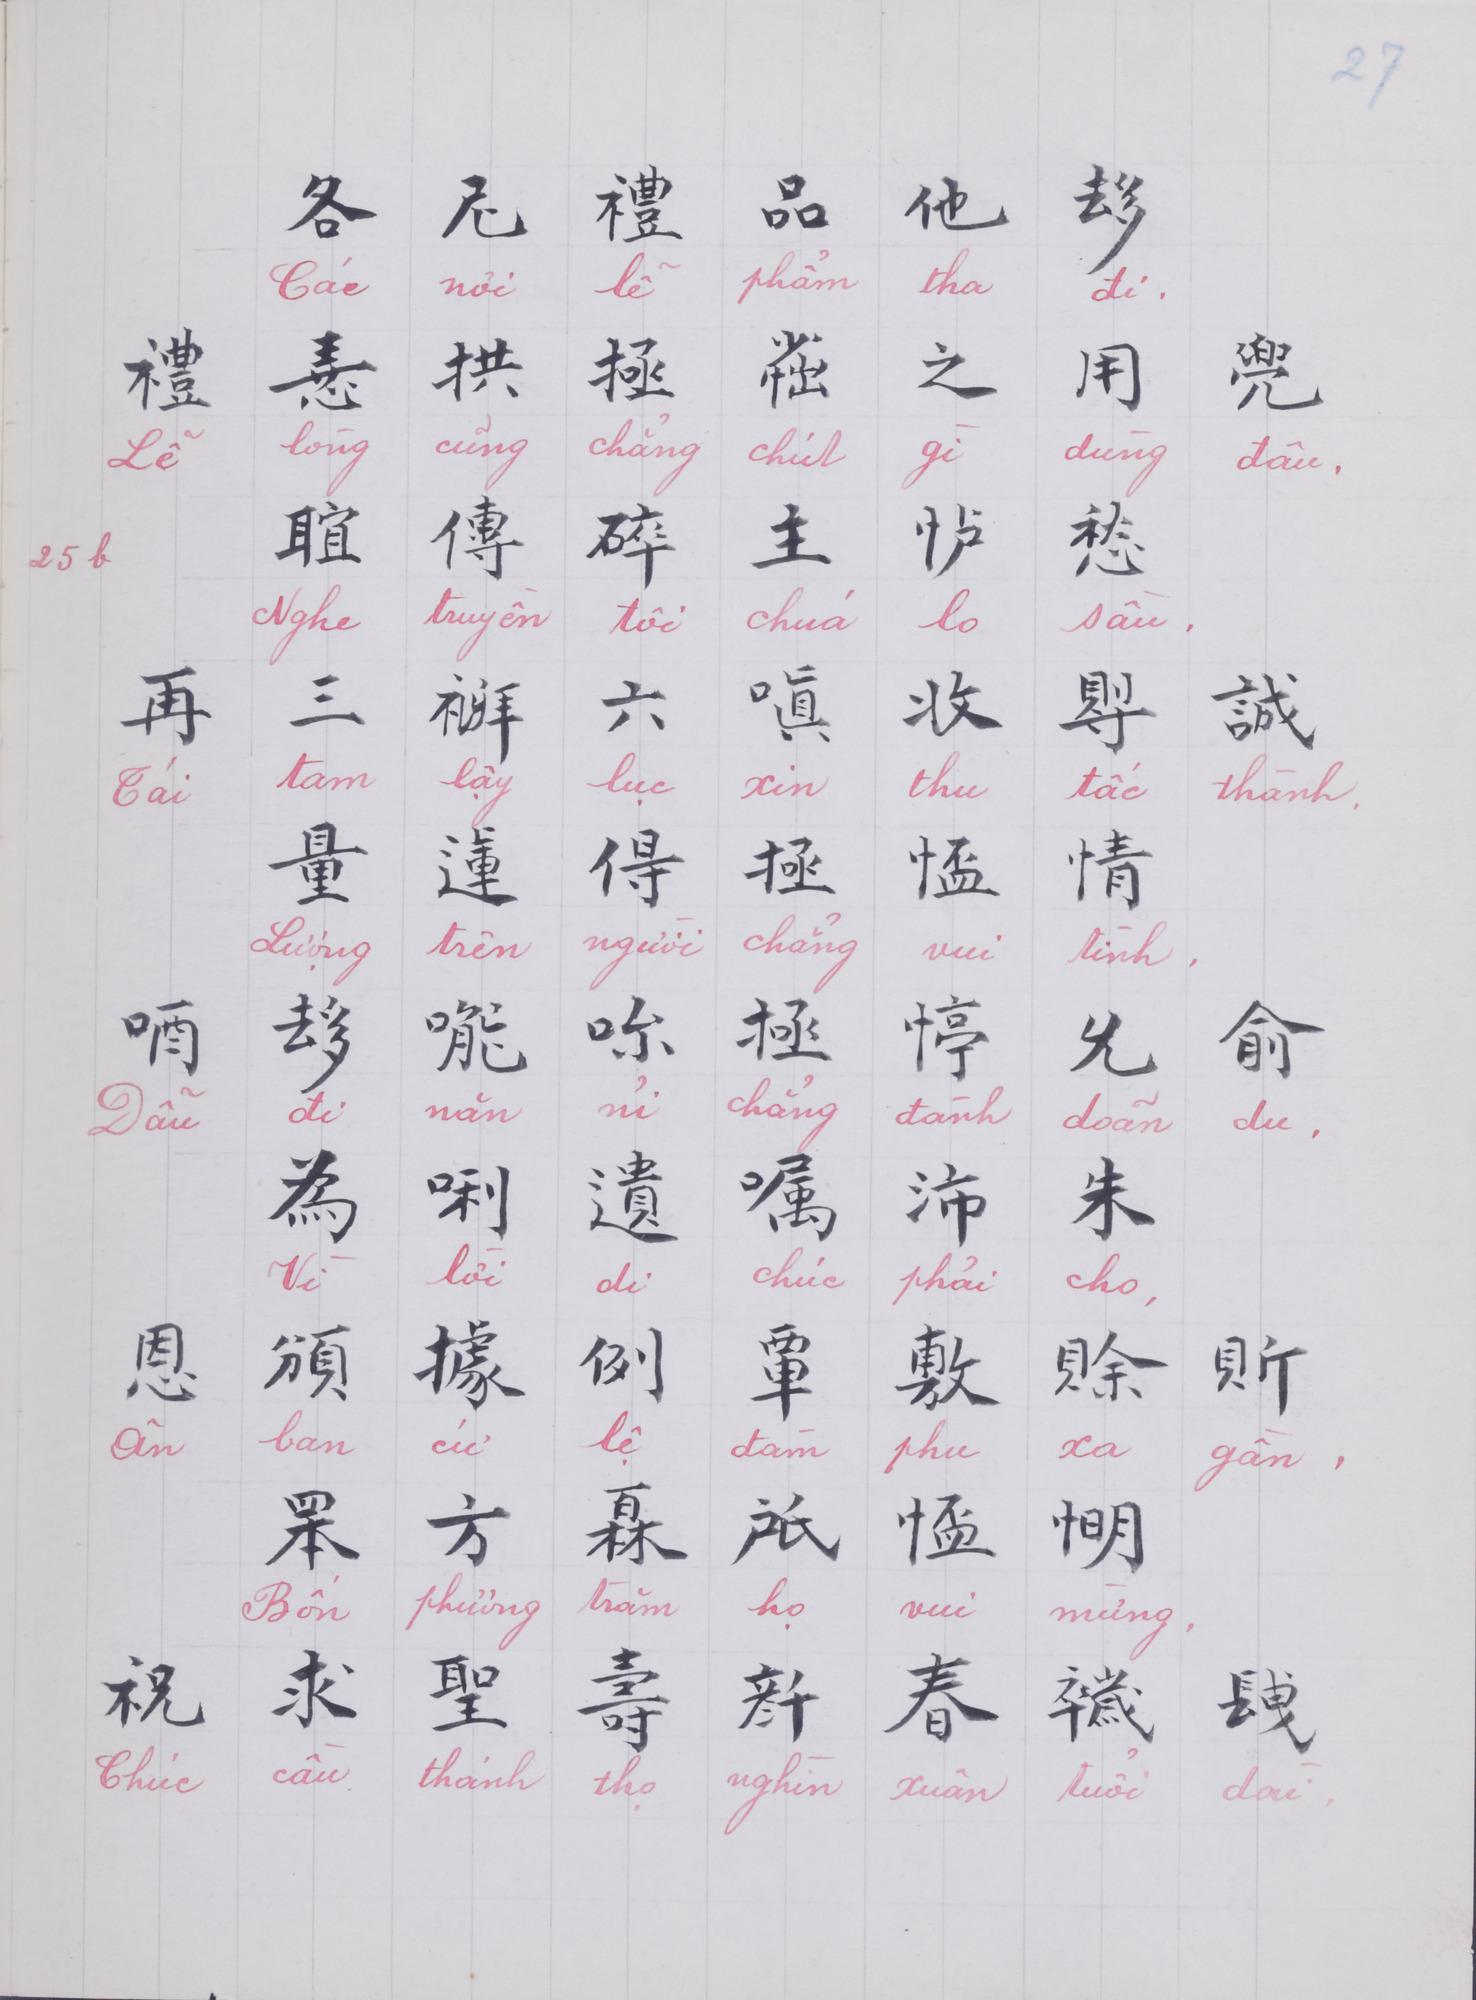 27
各尼禮品他𠫾
Các nơi lễ phẩm tha đi.
禮𢚸拱極𡮇之用兜
Lễ lòng cũng chẳng chút gì dùng đâu.
25b
䀏傳碎主㤕愁
Nghe truyền tôi chúa lo sầu.
再三𥛉六嗔收㝵誠
Tái tam lậy lục xin thu tấc thành.
量𨕭得極𢝙情
Lượng trên người chẳng vui tình.
唒𠫾㘋𠰚極㣼允俞
Dẫu đi năn nỉ chẳng đành doãn du.
為唎遺嘱沛朱
Vì lời di chúc phải cho,
恩頒據例覃敷賒𧵆
Ân ban cứ lệ đàm phu xa gần,
𦊚方𤾓𣱆𢝙𢜠
Bốn phương trăm họ vui mừng,
祝求聖壽𠦳春𢆫𨱽
Chúc cầu thánh thọ nghìn xuân tuổi dài.